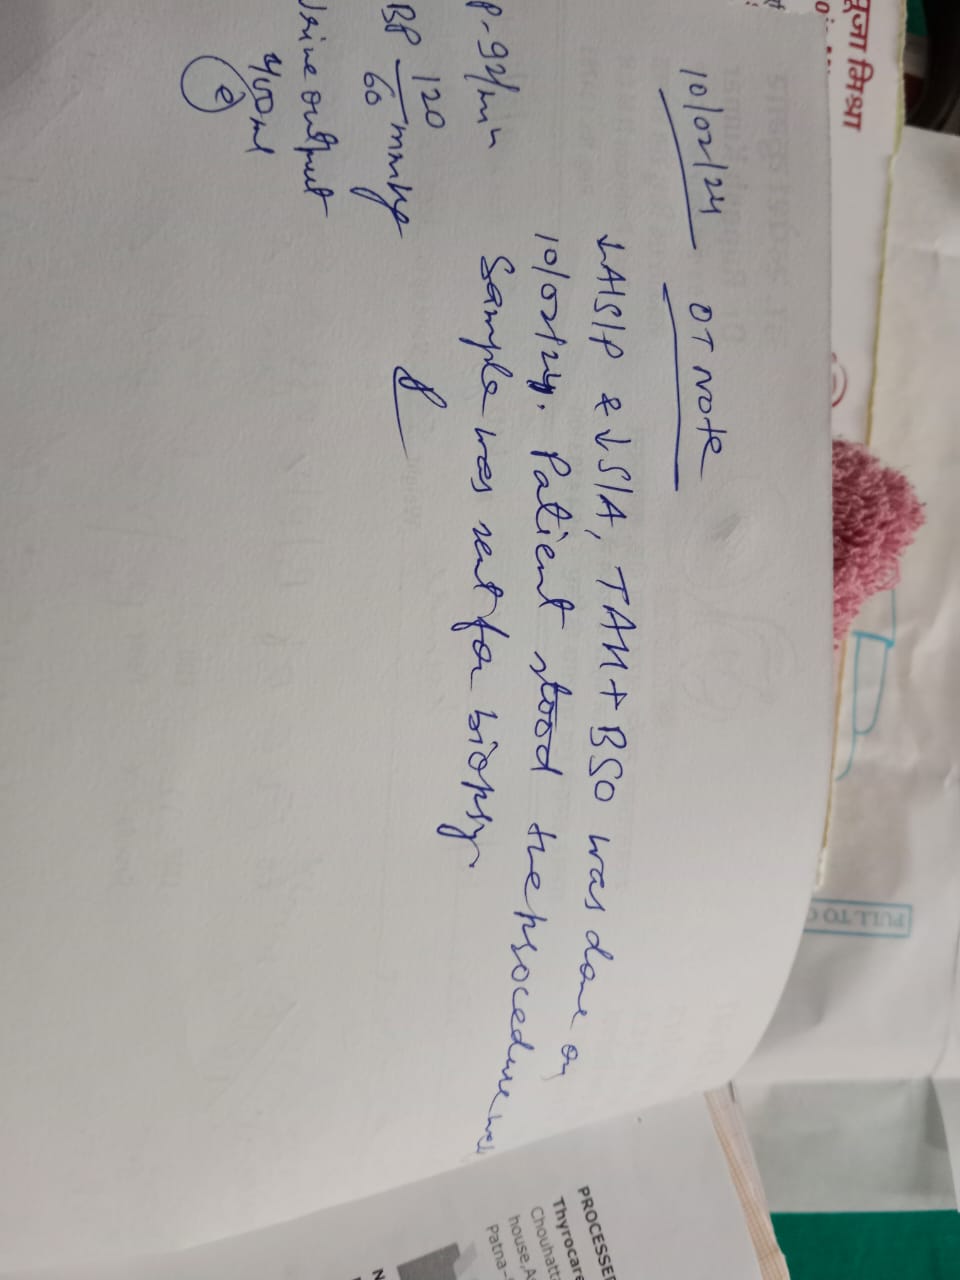 10/02/24 OT Note
↓A/S/P & ↓S/A, TAH + BSO was done on
10/02/24. Patient stood the procedure well
Sample was sent for biopsy.
P-92/min
BP 120/60 mmHg
Urine output
400ml
पूजा मिश्रा
PULL TO O
PROCESSED
Thyrocare
Chouhatta
house,As
Patna-